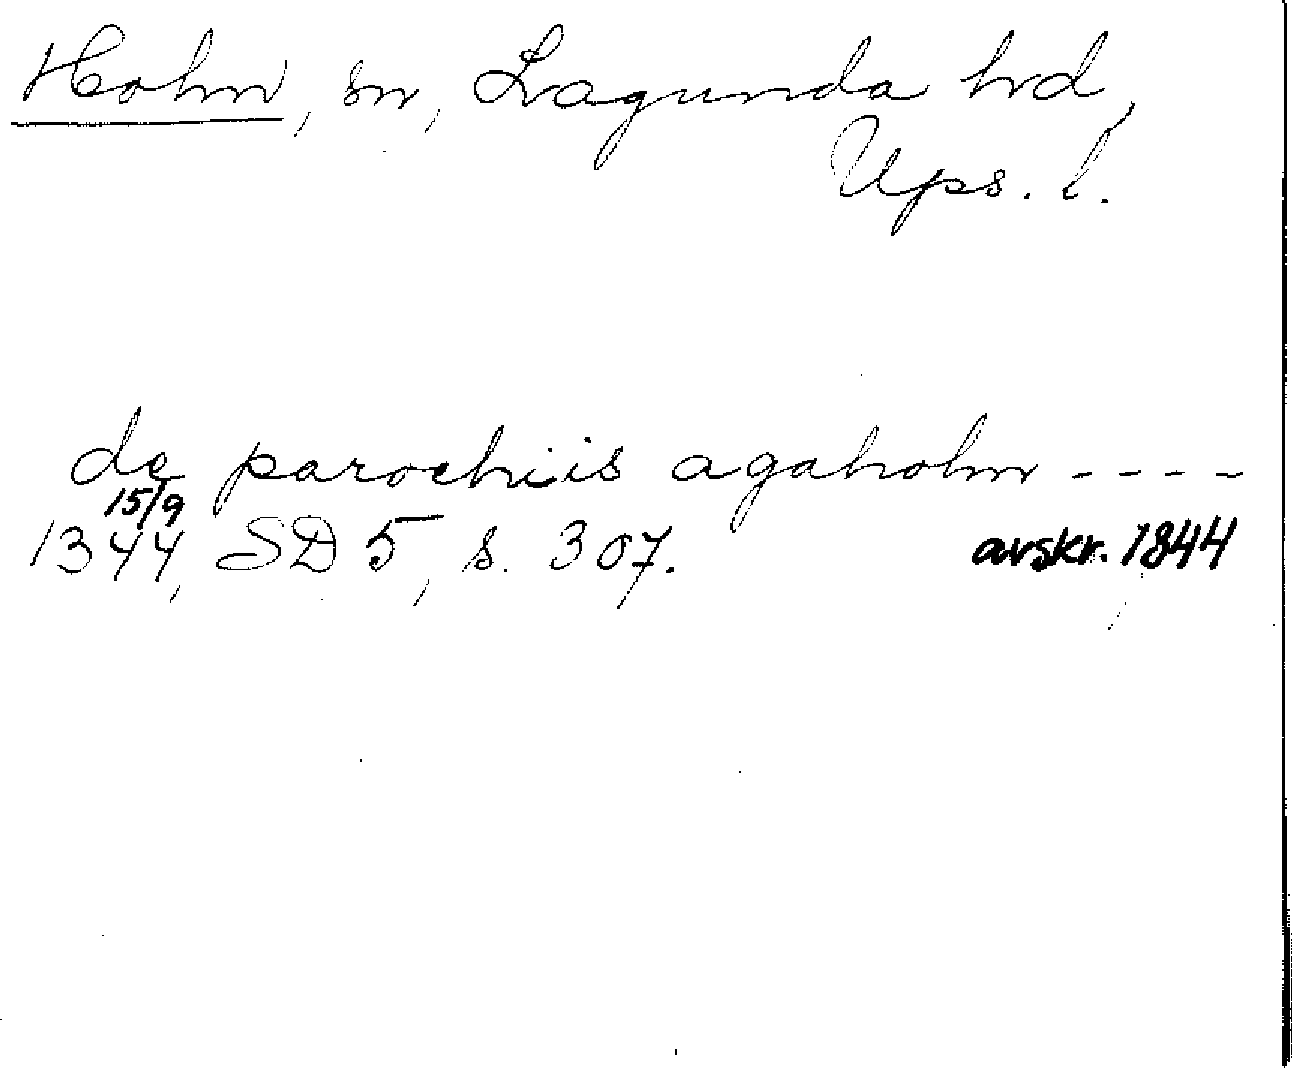 Holm, sn, Lagunda hd,
Ups. l.
de parochiis agaholm ----
15/9
1344, SD 5, s. 307. avskr. 1844